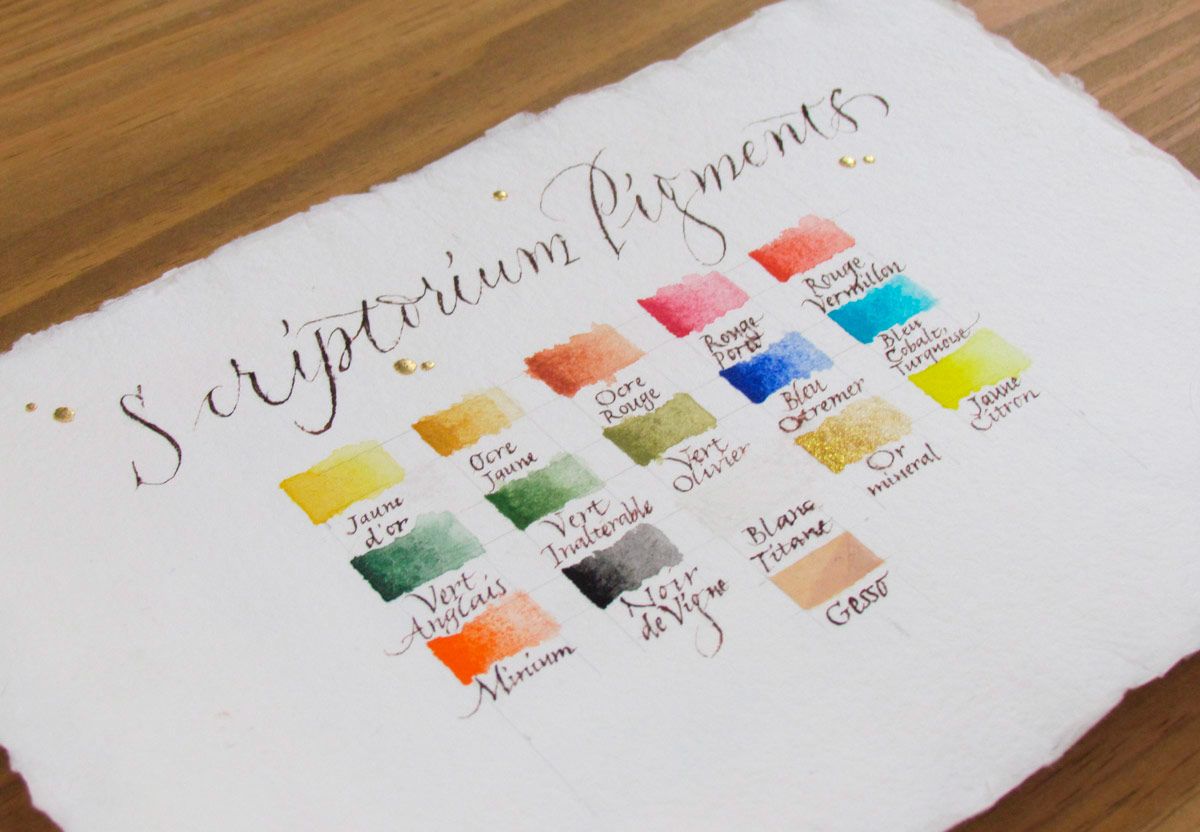 Scriptorium Pigments
Jaune
d'or
Ocre
Jaune
Ocre
Rouge
Rouge
Porto
Rouge
Vermillon
Vert
Anglais
Vert
Inaltérable
Vert
Olivier
Bleu
Outremer
Bleu
Cobalt,
Turquoise
Minium
Noir
de Vigne
Blanc
Titane
Or
mineral
Jaune
Citron
Gesso